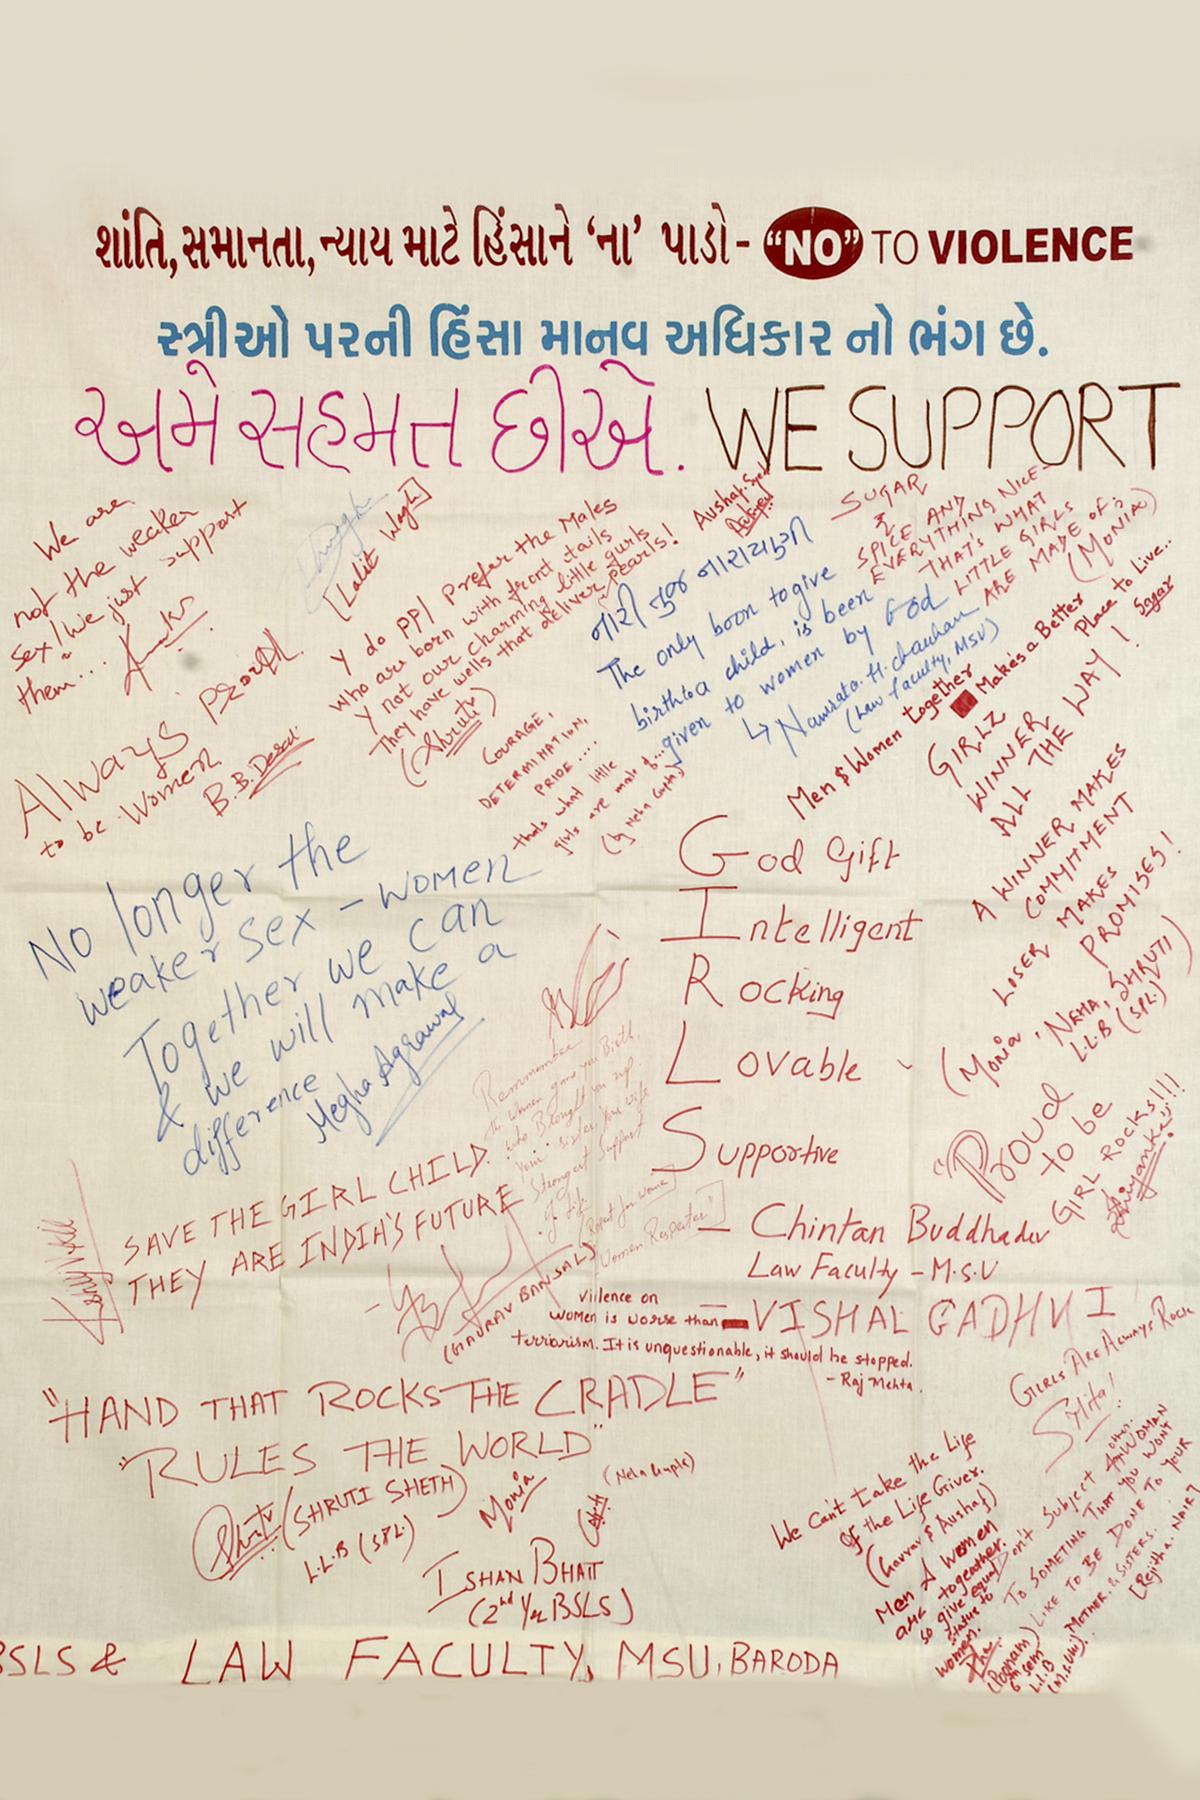 શાંતિ, સમાનતા, ન્યાય માટે હિંસાને ‘ના’ પાડો - “NO” TO VIOLENCE
સ્ત્રીઓ પરની હિંસા માનવ અધિકાર નો ભંગ છે.
અમે સહમત છીએ. WE SUPPORT
We are
not the weaker
sex! We just support
them...
[Lalit Wagh]
Y do PPl Prefer the Males
who are born with front tails
Y not our charming little gurls
They have wells that deliver pearls!
(Shruti)
નારી તુજ નારાયણી
The only boon to give
birth to a child, is been
given to women by God
↳ Namrata. H. Chauhan
(Law faculty, MSU)
SUGAR
&
SPICE AND
EVERYTHING NICE-
THAT'S WHAT
LITTLE GIRLS
ARE MADE OF :
(MONIA)
Men & Women together Makes a Better
Place to Live...
Sagar
Always proud
to be Women
B.B. Desai
COURAGE,
DETERMINATION,
PRIDE....
thats what little
girls are made of...
(by Neha Gupta)
GIRLZ
WINNER
ALL THE WAY!
A WINNER MAKES
COMMITMENT
LOSER MAKES
PROMISES!
(Monia, NEHA, SHRUTI)
L.L.B (SPL.)
No longer the
weaker sex - women
Together we can
& we will make a
difference
Megha Agrawal
God Gift
Intelligent
Rocking
Lovable
Supportive
- Chintan Buddhadev
Law Faculty - M.S.U
- VISHAL GADHVI
"PROUD
to be
GIRL ROCKS!!!
Remember
the women gave you Birth,
who Brought you up
Your sister, Your wife
Strongest Support
of life
Women Respecter"
SAVE THE GIRL CHILD
THEY ARE INDIA'S FUTURE
(GAURAV BANSAL)
Violence on
women is worse than
terriorism. It is unquestionable, it should be stopped.
- Raj Mehta.
"HAND THAT ROCKS THE CRADLE"
"RULES THE WORLD"
Shruti (SHRUTI SHETH)
L.L.B (SPL.)
Monia
(Neha Gupta)
ISHAN BHATT
(2nd Yr BSLS)
GIRLS ARE ALWAYS ROCK
We Can't take the Life
of the Life Giver.
(Gaurav & Aushaf)
Men & women
are together.
so give equal
status to
women.
(Poonam)
6th sem
LL.B
(M.S.Uni)
Don't Subject Any other WOMAN
TO SOMETING THAT YOU WONT
LIKE TO BE DONE TO YOUR
MOTHER & SISTERS.
[Rejitha. NAIR]
BSLS & LAW FACULTY, MSU, BARODA